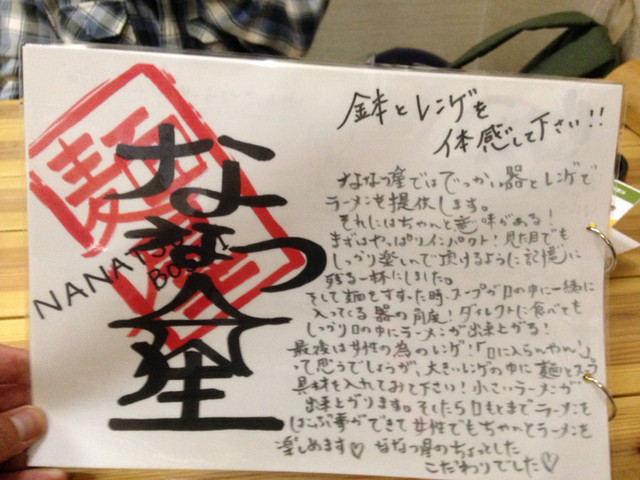 鉢とレンゲを
体感して下さい!!
麺
ななつ星
NANATSU
BOSHI
ななつ星ではでっかい器とレンゲで
ラーメンを提供します。
それにはちゃんと意味がある!
まずはやっぱりインパクト!見た目でも
しっかり楽しんで頂けるように記憶に
残る一杯にしました。
そして麺をすすった時、スープが口の中に一緒に
入ってくる器の角度!ダイレクトに食べても
しっかり口の中にラーメンが出来上がる!
最後は女性の為のレンゲ!「口に入らんやん!」
って思うでしょうが、大きいレンゲの中に麺とスープ
具材を入れてみて下さい!小さいラーメンが
出来上がります。そしたら口もとまでラーメンを
はこぶ事ができて女性でもちゃんとラーメンを
楽しめます♡ ななつ星のちょっとした
こだわりでした♡